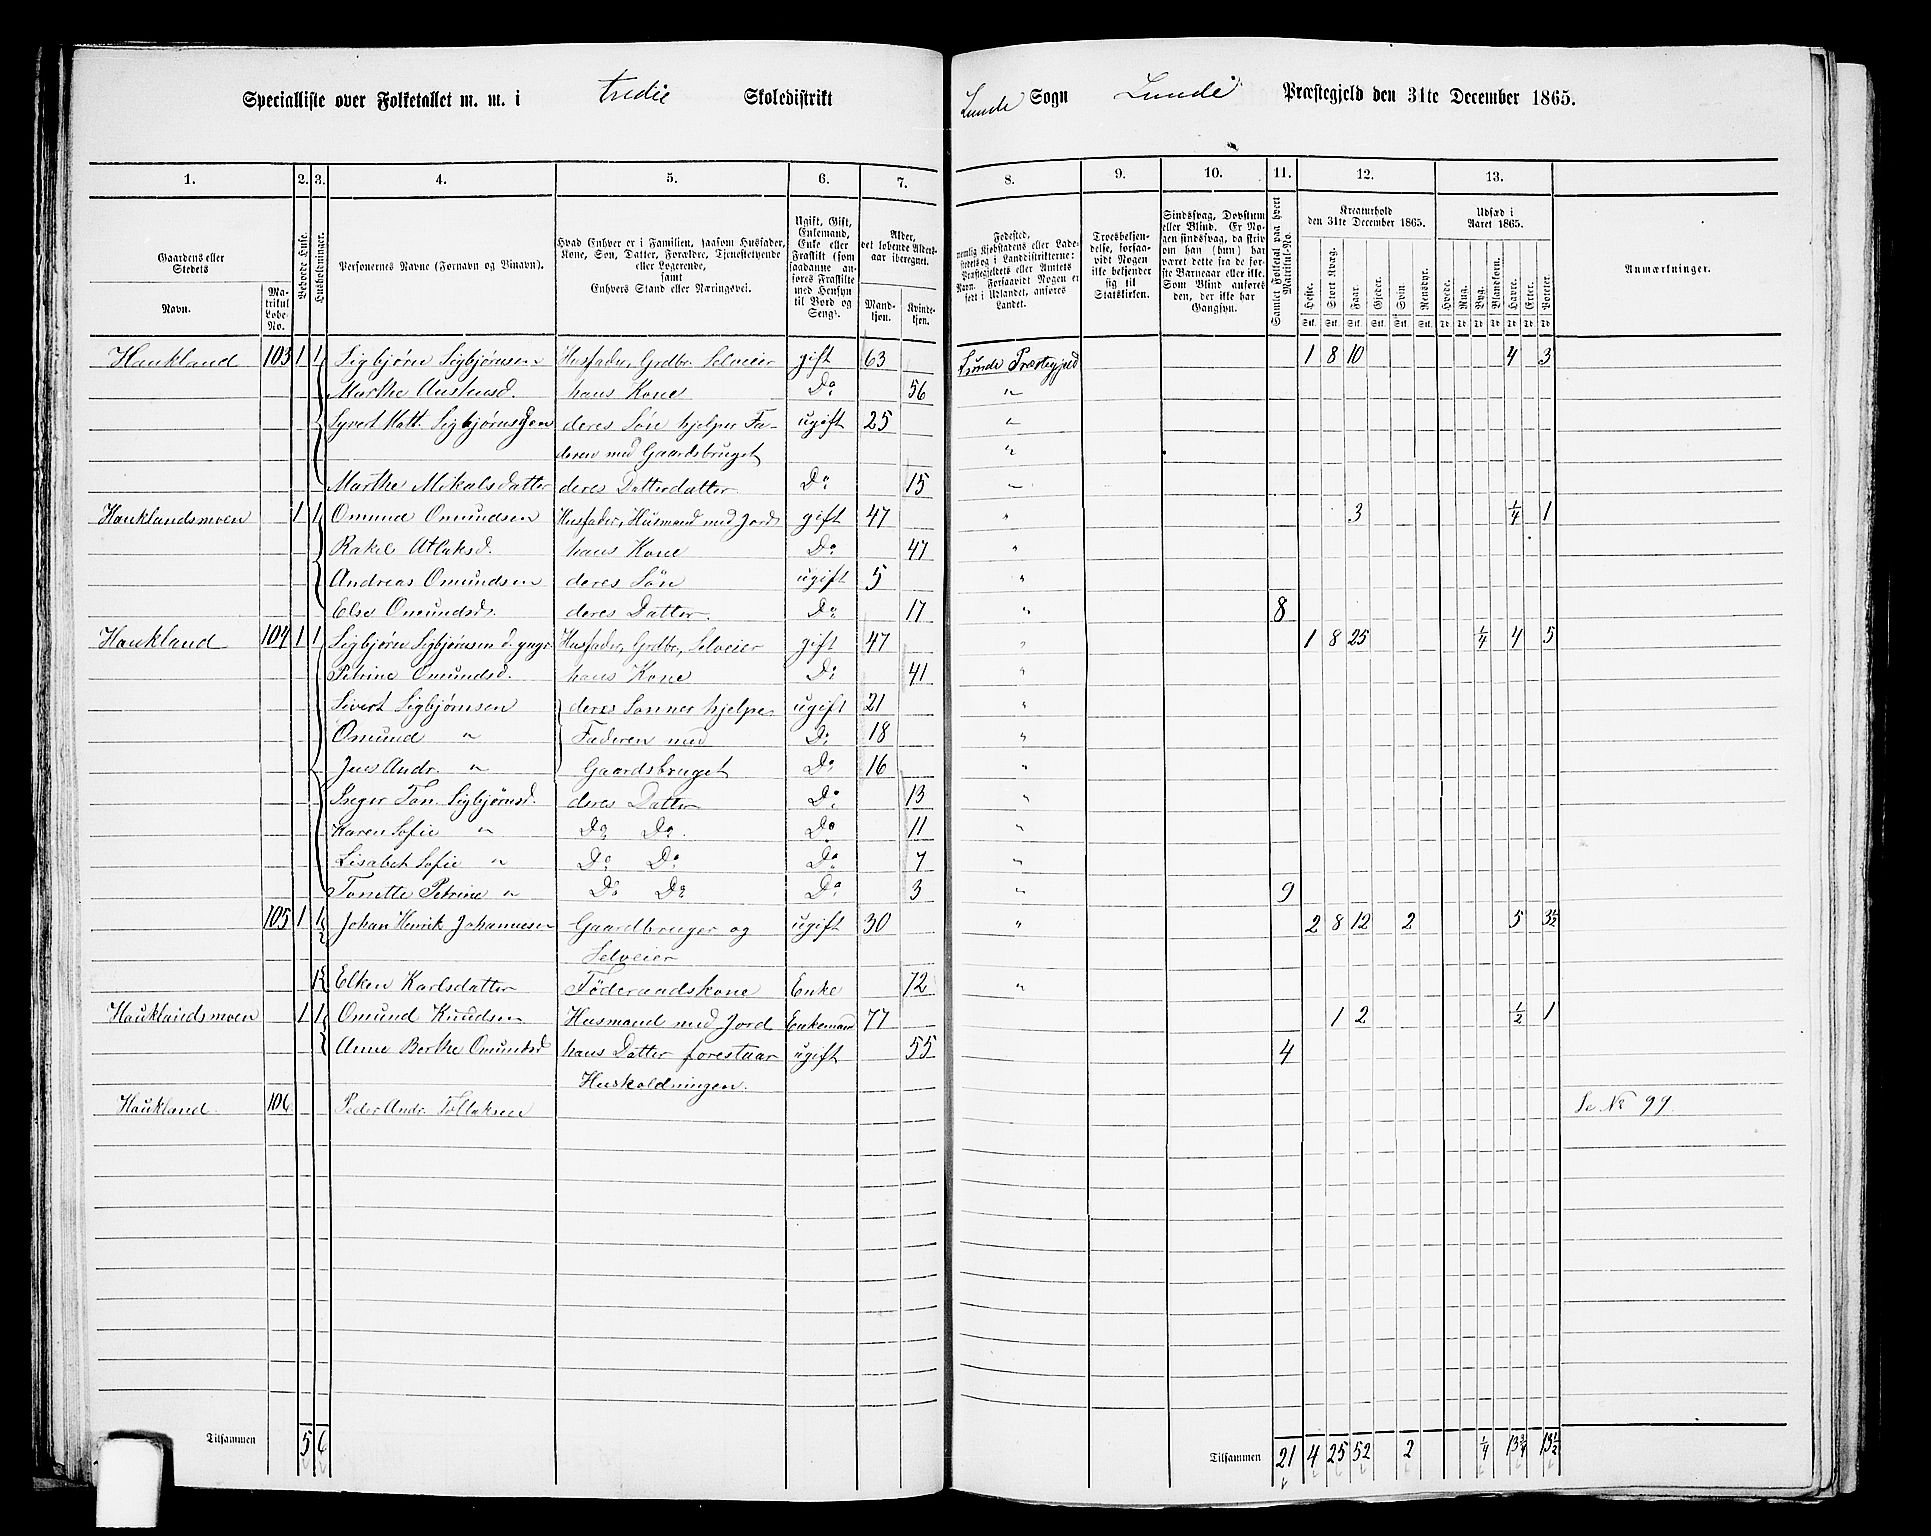 Specialliste over Folketallet m. m. i tredie Skoledistrikt Lunde Sogn Lunde Præstegjeld den 31te December 1865.
1. 2. 3. 4. 5. 6. 7. 8. 9. 10. 11. 12. 13.
Gaardens eller Stedets
Navn.
Matrikul Løbe-No.
Beboede Huse.
Husholdninger.
Personernes Navne (Fornavn og Tilnavn).
Hvad Enhver er i Familien, saasom Husfader, Kone, Søn, Datter, Forældre, Tjenestetyende eller Logerende, samt Enhvers Stand eller Næringsvei.
Ugift, Gift, Enkemand, Enke eller Fraskilt (som saadanne anføres Fraskilte med Hensyn til Bord og Seng).
Alder, det løbende Alders-aar iberegnet.
Mandkjøn. Kvindekjøn.
Fødested, nemlig Kjøbstadens eller Ladestedets og i Landdistrikterne: Præstegjeldets eller Amtets Navn. Forsaavidt Nogen er født i Udlandet, anføres Landet.
Troesbekjendelse, forsaavidt Nogen ikke bekjender sig til Statskirken.
Sindssvag, Døvstum eller Blind. Er Nogen sindssvag, da skrives om han (hun) har været dette fra de første Barneaar eller ikke. Som Blind anføres den, der ikke har Gangsyn.
Samlet Folketal paa hvert Matrikul-No.
Kreaturhold den 31te December 1865.
Heste. Stort Kvæg. Faar. Gjeder. Svin. Rensdyr.
Udsæd i Aaret 1865.
Hvede. Rug. Byg. Blandkorn. Havre. Erter. Poteter.
Anmærkninger.
Haukland 103 1 1 Sigbjørn Sigbjørnsen Husfader, Grdbr. Selveier gift 63 Lunde Præstegjeld 1 8 10 4 3
Marthe Austensd. hans Kone Do 56 "
Syvert Matt. Sigbjørnsen deres Søn hjelper Fa- ugift 25 "
deren med Gaardsbruget "
Marthe Mikalsdatter deres Datterdatter Do 15 "
Hauklandsmoen 1 1 Omund Omundsen Husfader, Husmand med Jord gift 47 " 3 1/4 1
Rakel Atlaksd. hans Kone Do 47 "
Andreas Omundsen deres Søn ugift 5 "
Else Omundsd. deres Datter Do 17 " 8
Haukland 104 1 1 Sigbjørn Sigbjørnsen d. yngr Husfader, Grdbr, Selveier gift 47 " 1 8 25 1/4 4 5
Petrine Omundsd. hans Kone Do 41 "
Sivert Sigbjørnsen deres Sønner hjelpe ugift 21 "
Omund " Faderen med Do 18 "
Jens Andr. " Gaardsbruget Do 16 "
Inger Ton. Sigbjørnsd. deres Datter Do 13 "
Karen Sofie " Do Do Do 11 "
Lisabet Sofie " Do Do Do 7 "
Tonette Petrine " Do Do Do 3 " 9
105 1 1 Johan Henrik Johannesen Gaardbruger og ugift 30 " 2 8 12 2 5 3 1/2
Selveier
1 Elken Karlsdatter Föderaadskone Enke 72 "
Hauklandsmoen 1 1 Omund Knudsen Husmand med Jord Enkemand 77 1 2 1/2 1
Anne Berthe Omundsd hans Datter forestaar ugift 55 4
Husholdningen.
Haukland. 106 Peder Andr. Tollaksen Se No 99
Tilsammen 5 6 Tilsammen 21 4 25 52 2 1/4 13 3/4 13 1/2